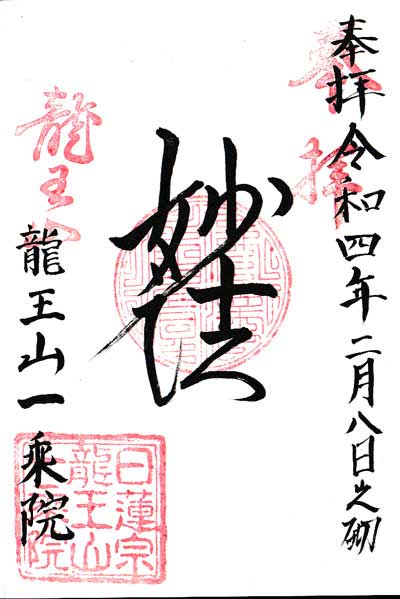 奉拝
奉拝令和四年二月八日之砌
妙法
龍王山
龍王山一乗院
日蓮宗
龍王山
一乗院